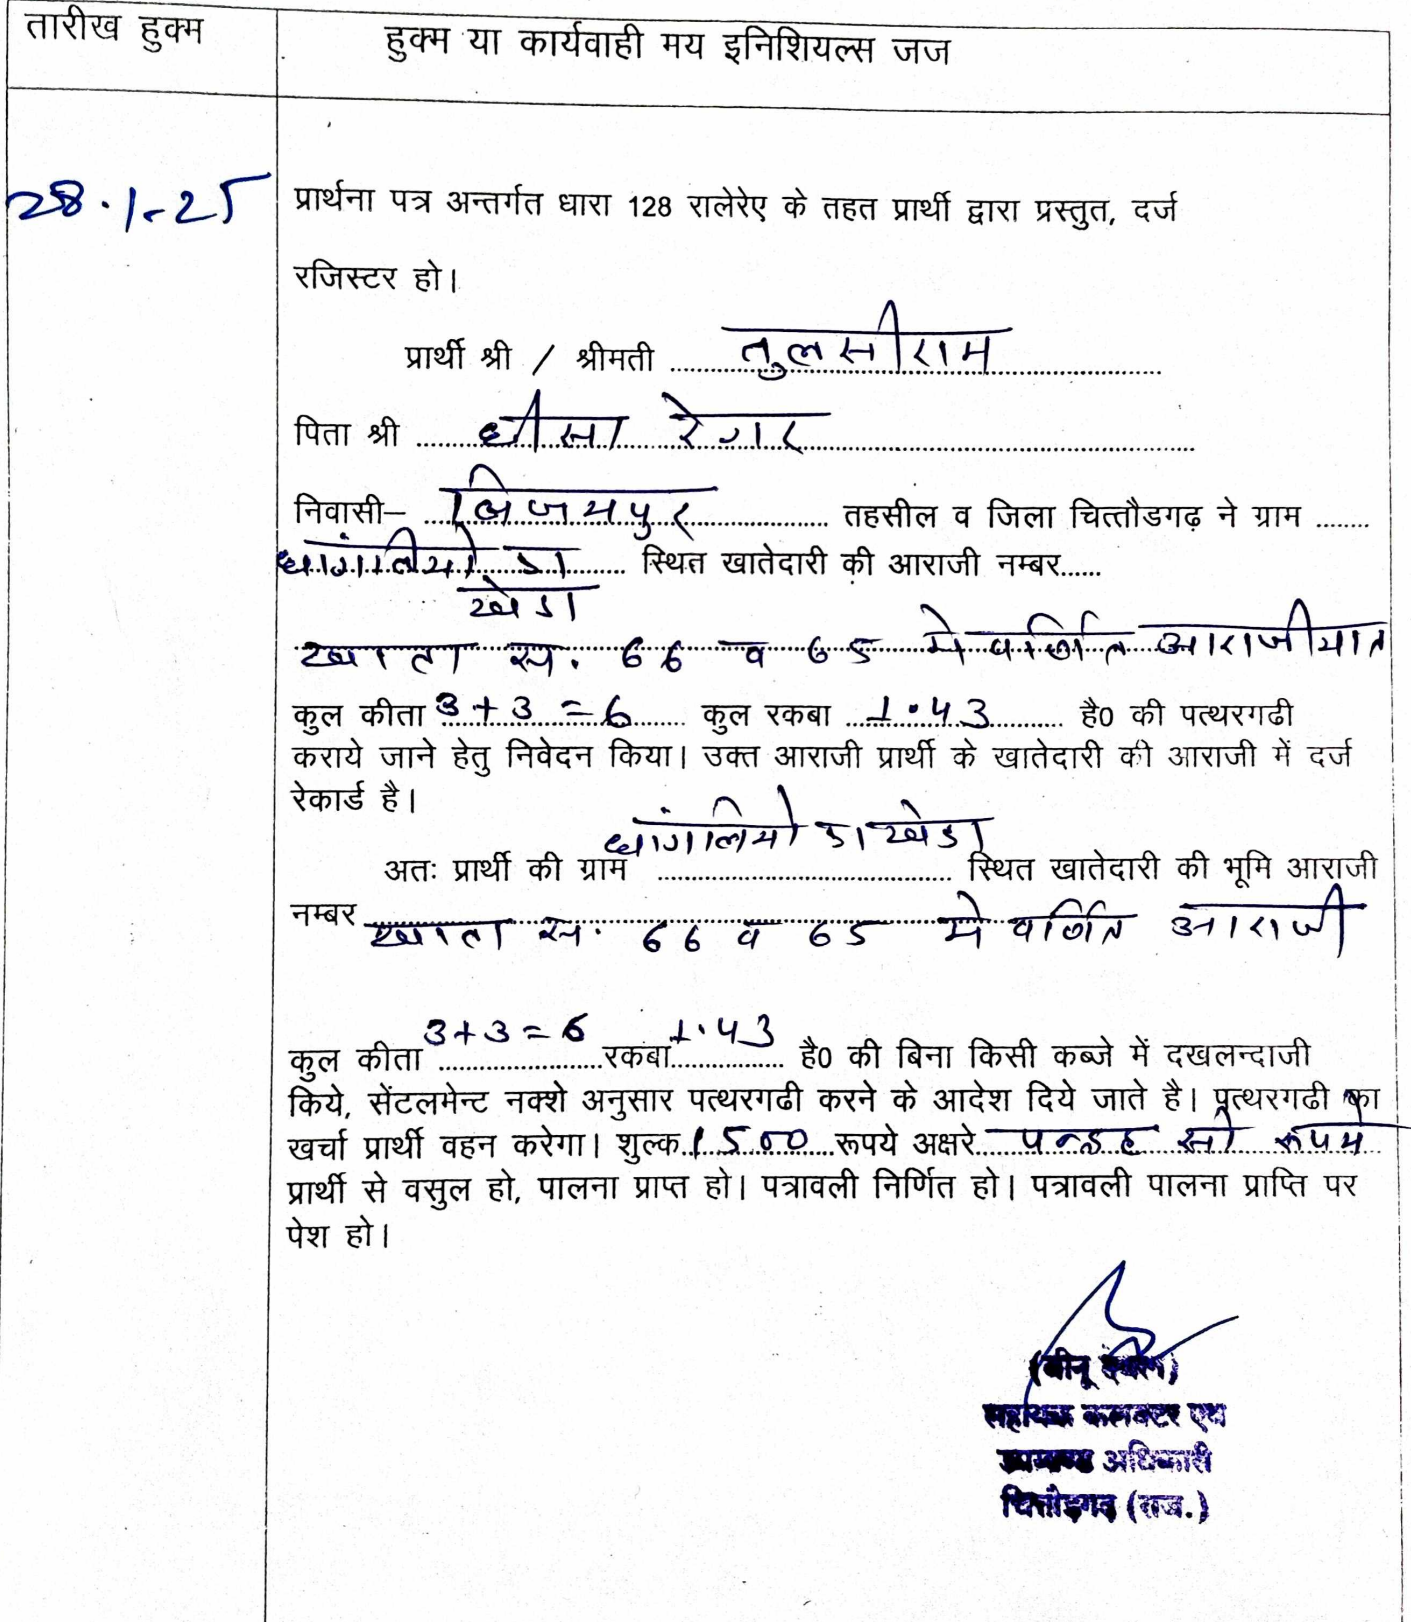 तारीख हुक्म
हुक्म या कार्यवाही मय इनिशियल्स जज
28.1.25
प्रार्थना पत्र अन्तर्गत धारा 128 रालेरेए के तहत प्रार्थी द्वारा प्रस्तुत, दर्ज
रजिस्टर हो।
प्रार्थी श्री / श्रीमती तुलसीराम
पिता श्री घीसा रेगर
निवासी– बिजयपुर तहसील व जिला चित्तौडगढ़ ने ग्राम
स्थित खातेदारी की आराजी नम्बर
खेडा
खाता स. 66 व 65 मे वर्णित आराजीयात
कुल कीता 3+3=6 कुल रकबा 1.43 है0 की पत्थरगढी
कराये जाने हेतु निवेदन किया। उक्त आराजी प्रार्थी के खातेदारी की आराजी में दर्ज
रेकार्ड है।
अतः प्रार्थी की ग्राम स्थित खातेदारी की भूमि आराजी
नम्बर खाता स. 66 व 65 मे वर्णित आराजी
कुल कीता 3+3=6 रकबा 1.43 है0 की बिना किसी कब्जे में दखलन्दाजी
किये, सेंटलमेन्ट नक्शे अनुसार पत्थरगढी करने के आदेश दिये जाते है। पत्थरगढी का
खर्चा प्रार्थी वहन करेगा। शुल्क 1500 रूपये अक्षरे पन्द्रह सो रूपये
प्रार्थी से वसुल हो, पालना प्राप्त हो। पत्रावली निर्णित हो। पत्रावली पालना प्राप्ति पर
पेश हो।
सहायक कलक्टर एवं
उपखण्ड अधिकारी
चित्तौड़गढ़ (राज.)